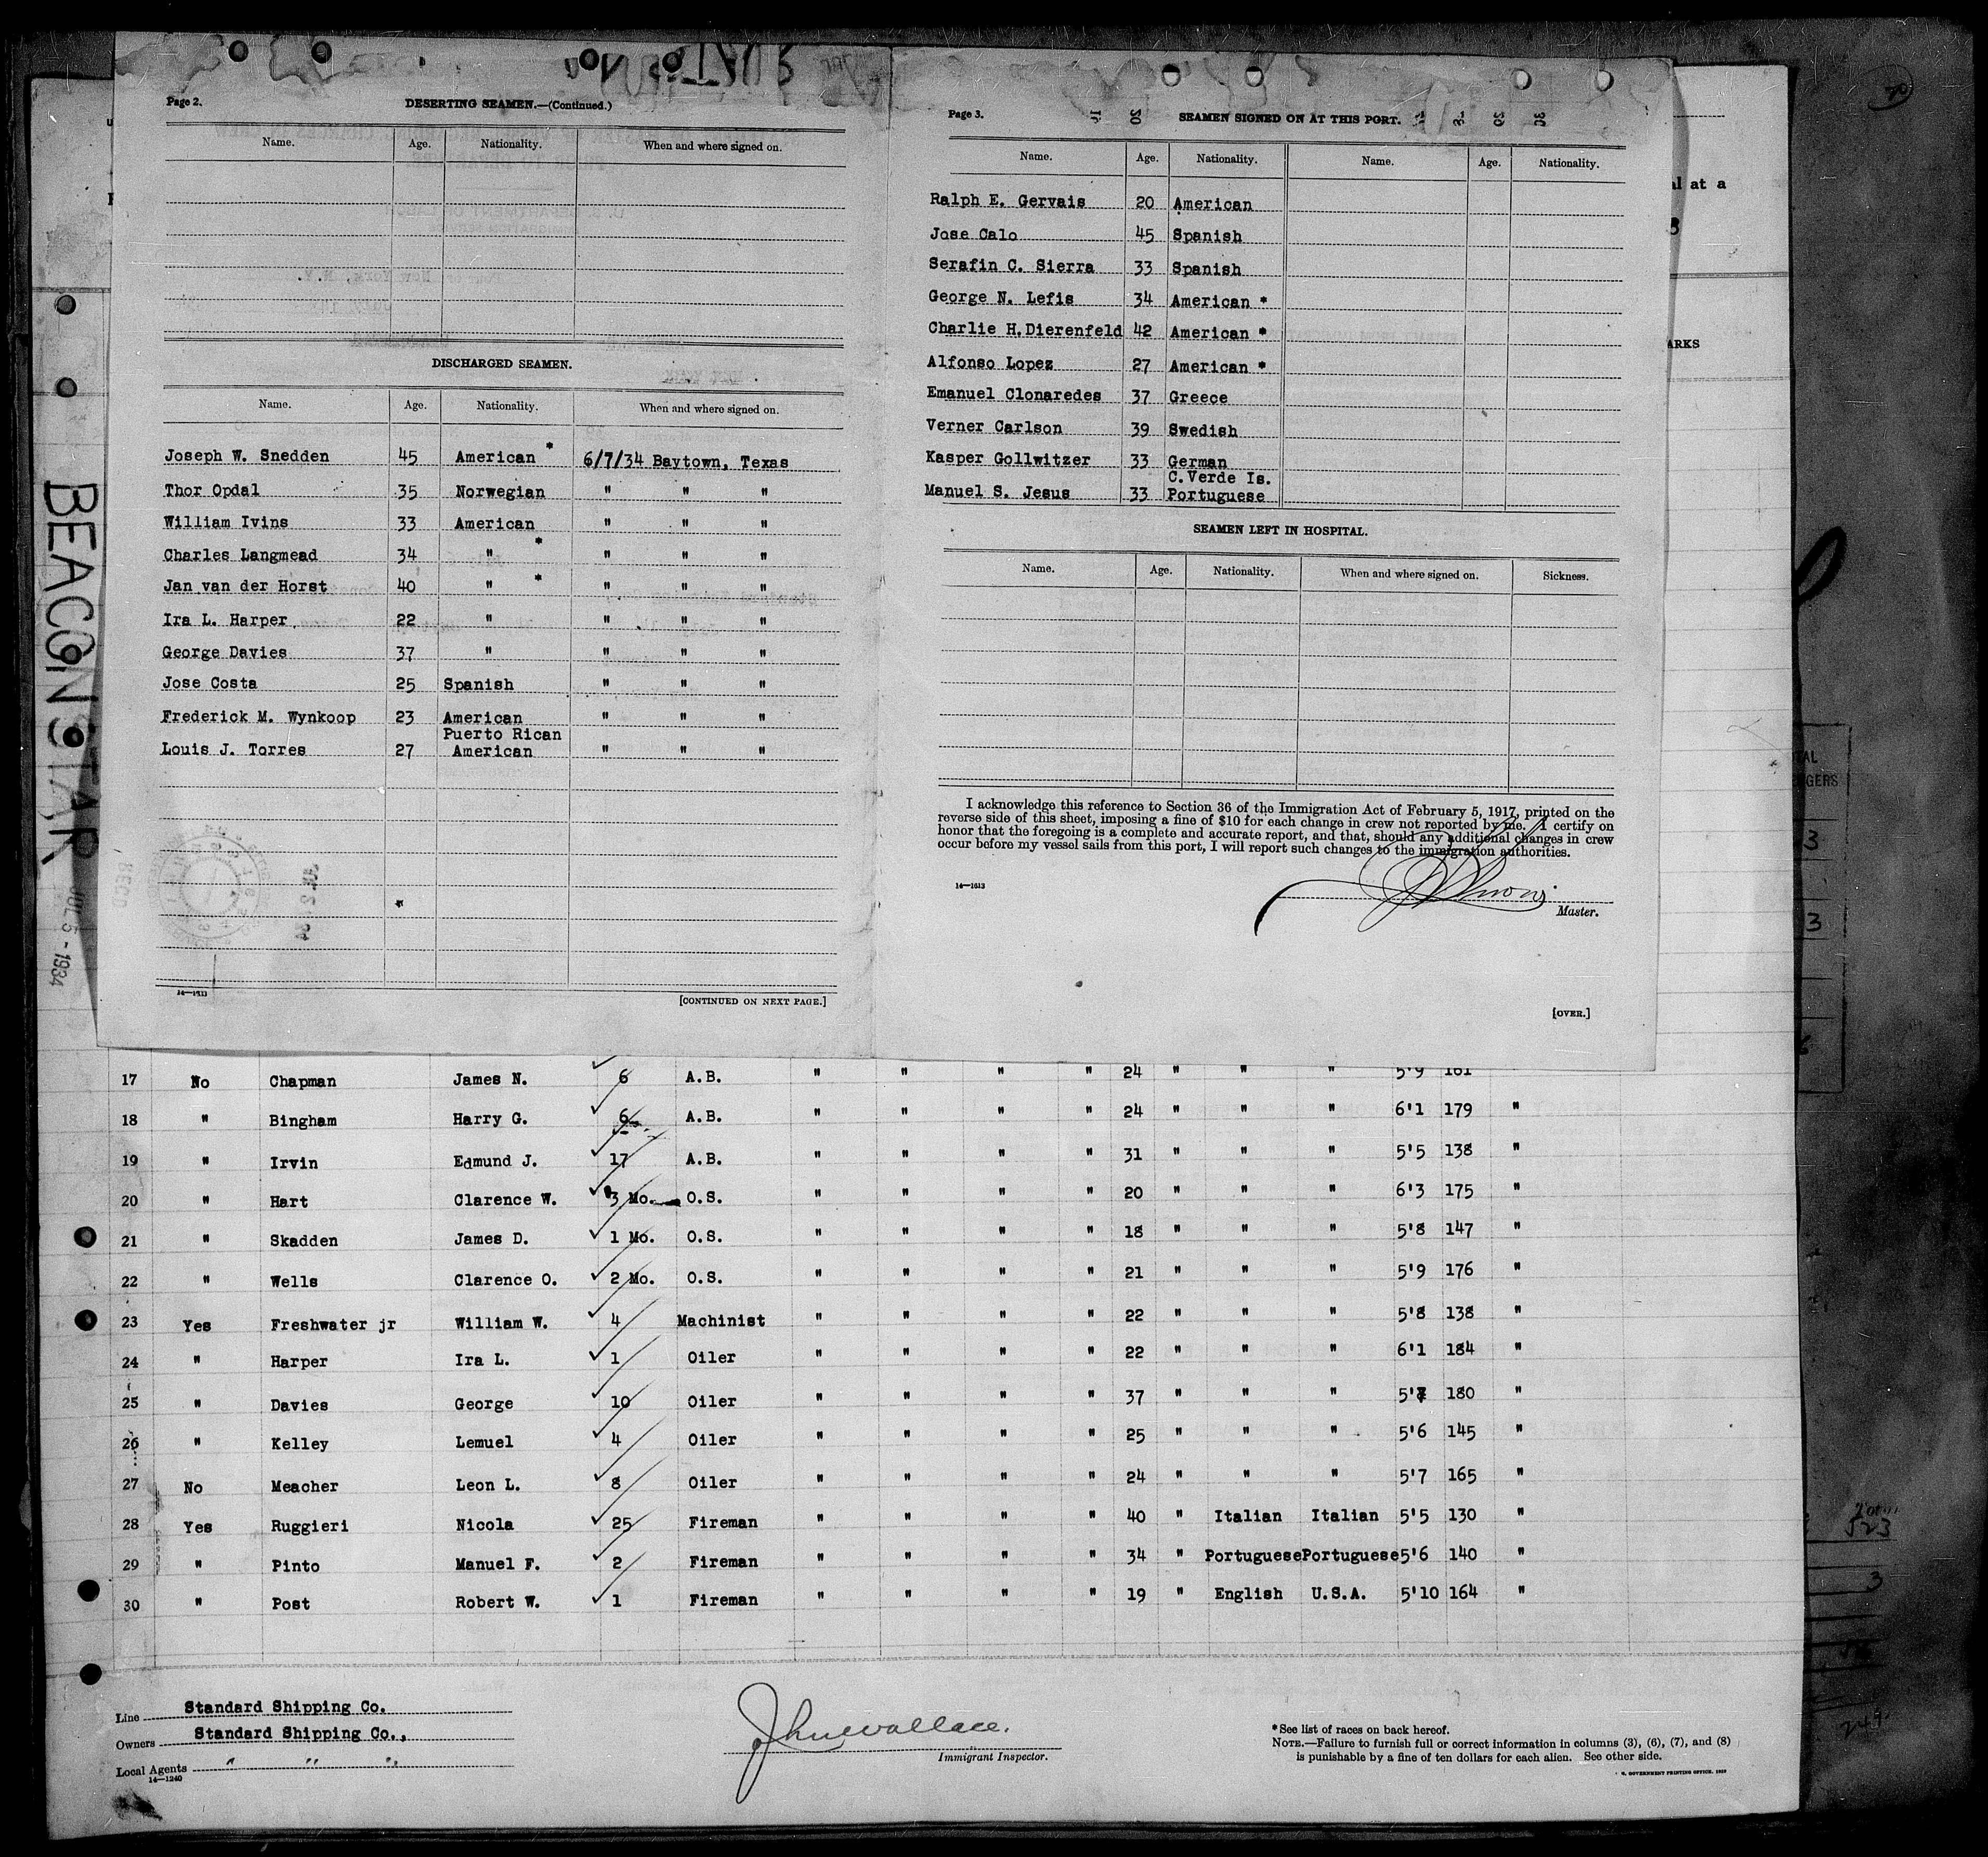 Page 2.
DESERTING SEAMEN.—(Continued.)
Name. Age. Nationality. When and where signed on.
DISCHARGED SEAMEN.
Name. Age. Nationality. When and where signed on.
Joseph W. Snedden 45 American * 6/7/34 Baytown, Texas
Thor Opdal 35 Norwegian " " "
William Ivins 33 American " " "
Charles Langmead 34 " * " " "
Jan van der Horst 40 " * " " "
Ira L. Harper 22 " " " "
George Davies 37 " " " "
Jose Costa 25 Spanish " " "
Frederick M. Wynkoop 23 American " " "
Puerto Rican
Louis J. Torres 27 American " " "
*
[CONTINUED ON NEXT PAGE.]
Page 3.
SEAMEN SIGNED ON AT THIS PORT.
Name. Age. Nationality. Name. Age. Nationality.
Ralph E. Gervais 20 American
Jose Calo 45 Spanish
Serafin C. Sierra 33 Spanish
George N. Lefis 34 American *
Charlie H. Dierenfeld 42 American *
Alfonso Lopez 27 American *
Emanuel Clonaredes 37 Greece
Verner Carlson 39 Swedish
Kasper Gollwitzer 33 German
C. Verde Is.
Manuel S. Jesus 33 Portuguese
SEAMEN LEFT IN HOSPITAL.
Name. Age. Nationality. When and where signed on. Sickness.
I acknowledge this reference to Section 36 of the Immigration Act of February 5, 1917, printed on the
reverse side of this sheet, imposing a fine of $10 for each change in crew not reported by me. I certify on
honor that the foregoing is a complete and accurate report, and that, should any additional changes in crew
occur before my vessel sails from this port, I will report such changes to the immigration authorities.
14—1613
Master.
[OVER.]
BEACON STAR
JUL 5 - 1934
al at a
ARKS
17 No Chapman James N. 6 A.B. " " " " 24 " " " 5'9 161
18 " Bingham Harry G. 6 A.B. " " " " 24 " " " 6'1 179 "
19 " Irvin Edmund J. 17 A.B. " " " " 31 " " " 5'5 138 "
20 " Hart Clarence W. 3 Mo. O.S. " " " " 20 " " " 6'3 175 "
21 " Skadden James D. 1 Mo. O.S. " " " " 18 " " " 5'8 147 "
22 " Wells Clarence O. 2 Mo. O.S. " " " " 21 " " " 5'9 176 "
23 Yes Freshwater jr William W. 4 Machinist " " " " 22 " " " 5'8 138 "
24 " Harper Ira L. 1 Oiler " " " " 22 " " " 6'1 184 "
25 " Davies George 10 Oiler " " " " 37 " " " 180 "
26 " Kelley Lemuel 4 Oiler " " " " 25 " " " 5'6 145 "
27 No Meacher Leon L. 8 Oiler " " " " 24 " " " 5'7 165 "
28 Yes Ruggieri Nicola 25 Fireman " " " " 40 " Italian Italian 5'5 130 "
29 " Pinto Manuel F. 2 Fireman " " " " 34 " Portuguese Portuguese 5'6 140 "
30 " Post Robert W. 1 Fireman " " " " 19 " English U.S.A. 5'10 164 "
Line Standard Shipping Co.
Owners Standard Shipping Co.,
Local Agents " " "
14—1240
Jhn Wallace.
Immigrant Inspector.
*See list of races on back hereof.
NOTE.—Failure to furnish full or correct information in columns (3), (6), (7), and (8)
is punishable by a fine of ten dollars for each alien. See other side.
GOVERNMENT PRINTING OFFICE